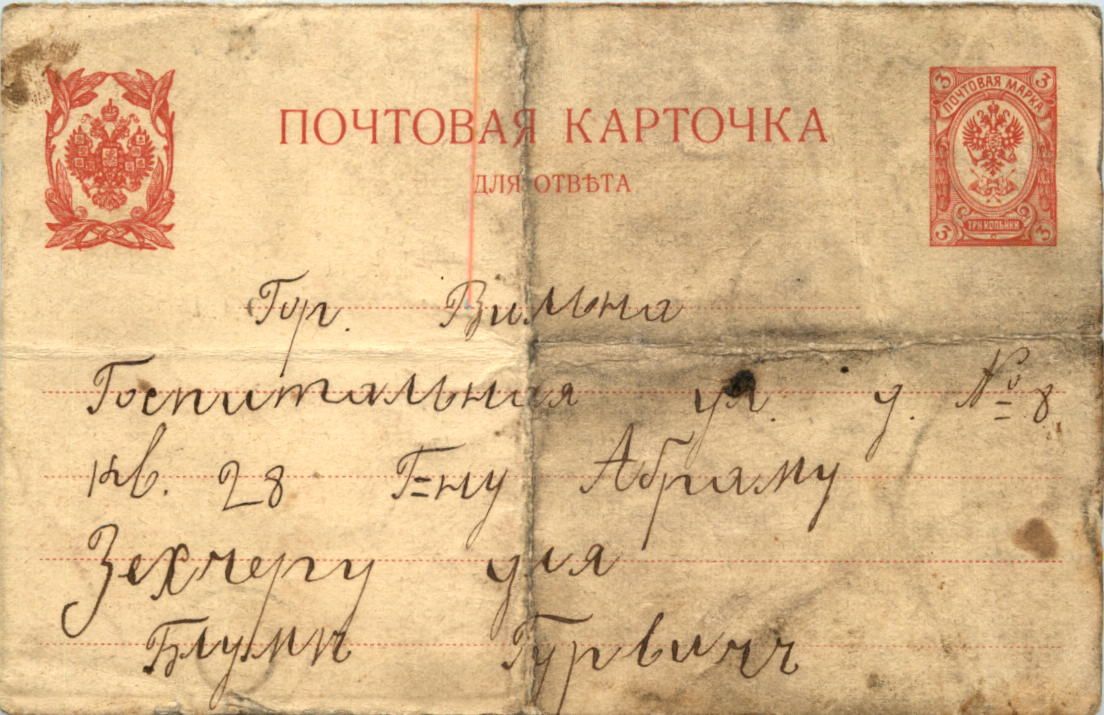 ПОЧТОВАЯ КАРТОЧКА
ДЛЯ ОТВѢТА
3 ПОЧТОВАЯ МАРКА 3
3 ТРИ КОПѢЙКИ 3
Гор. Вильна
Госпитальная ул. д. № 8
кв. 28 Г=ну Абраму
Зехчеру для
Блумы Гурвичъ